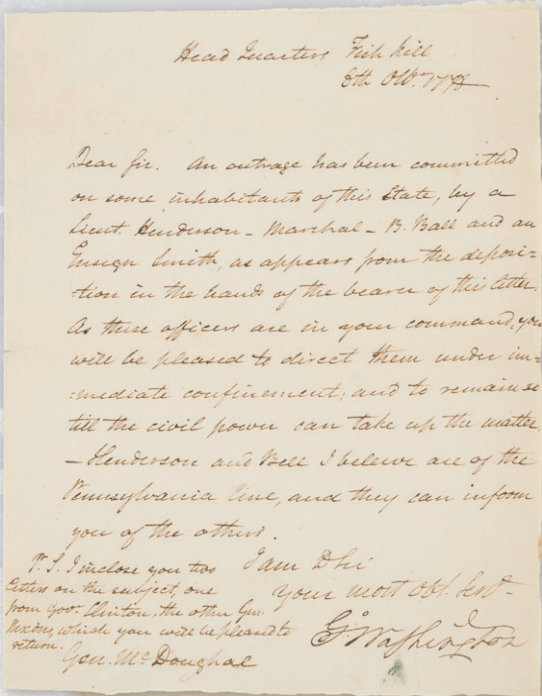 Head Quarters Fish kill
8th Octbr. 1778
Dear Sir. An outrage has been committed
on some inhabitants of this State, by a
Lieut. Henderson - Marshal - B. Ball and an
Ensign Smith, as appears from the deposi-
-tion in the hands of the bearer of this letter.
As these officers are in your command, you
will be pleased to direct them under im-
-mediate confinement; and to remain so
till the civil power can take up the matter.
- Henderson and Bell I believe are of the
Pennsylvania line, and they can inform
you of the others.
I am D Sir
your most Obt. Servt.
Go Washington
P.S. I inclose you two
letters on the subject, one
from Govr. Clinton, the other Gen.
Nixons, which you will be pleased to
return.
Gen. Mc Doughal